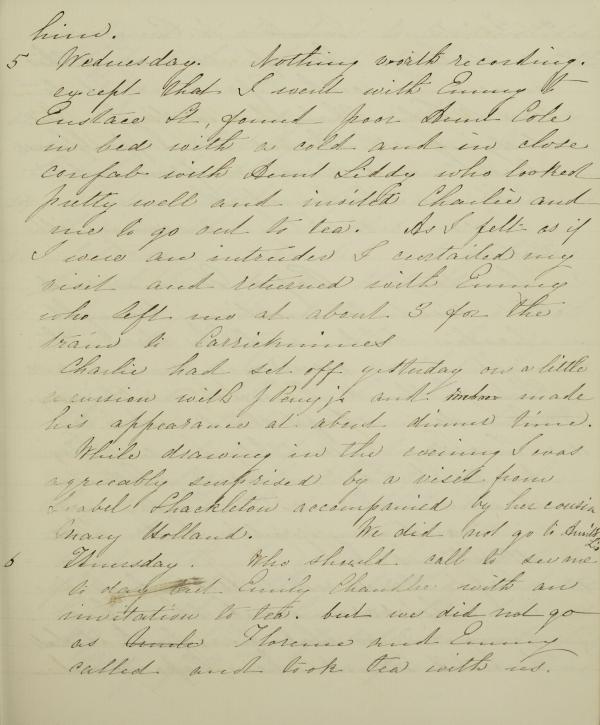 him.
5 Wednesday. Nothing worth recording.
except that I went with Emmy to
Eustace St, found poor Aunt Cole
in bed with a cold and in close
confab with Aunt Liddy who looked
pretty well and invited Charlie and
me to go out to tea. As I felt as if
I were an intruder I curtailed my
visit and returned with Emmy
who left me at about 3 for the
train to Carrickmines
Charlie had set off yesterday on a little
excursion with J Penry jr and made
his appearance at about dinner time.
While drawing in the evening I was
agreeably surprised by a visit from
Isabel Shackleton accompanied by her cousin
Mary Holland. We did not go to Aunt
6 Thursday. Who should call to see me
to day but Emily Chandlee with an
invitation to tea. but we did not go
as Uncle Florence and Emmy
called and took tea with us.